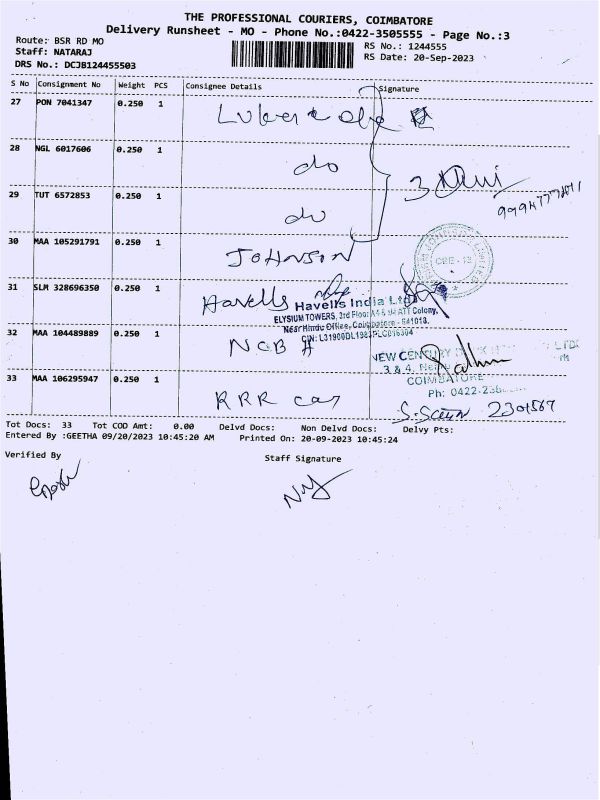 THE PROFESSIONAL COURIERS, COIMBATORE
Delivery Runsheet - MO - Phone No.:0422-3505555 - Page No.:3
Route: BSR RD MO
Staff: NATARAJ
DRS No.: DCJB124455503
RS No.: 1244555
RS Date: 20-Sep-2023
S No Consignment No Weight PCS Consignee Details Signature
27 PON 7041347 0.250 1
28 NGL 6017606 0.250 1 do
29 TUT 6572853 0.250 1 do
30 MAA 105291791 0.250 1 JOHNSON
CBE - 18
31 SLM 328696350 0.250 1 Havells
Havells India Ltd
ELYSIUM TOWERS, 3rd Floor, ATT Colony,
Near Hindu Office, Coimbatore - 641018.
CIN: L31900DL1983PLC016304
32 MAA 104489889 0.250 1 NCBH
NEW CENTURY
3 & 4,
COIMBATORE
Ph: 0422-236
33 MAA 106295947 0.250 1 RRR car
2301567
Tot Docs: 33 Tot COD Amt: 0.00 Delvd Docs: Non Delvd Docs: Delvy Pts:
Entered By :GEETHA 09/20/2023 10:45:20 AM Printed On: 20-09-2023 10:45:24
Verified By Staff Signature